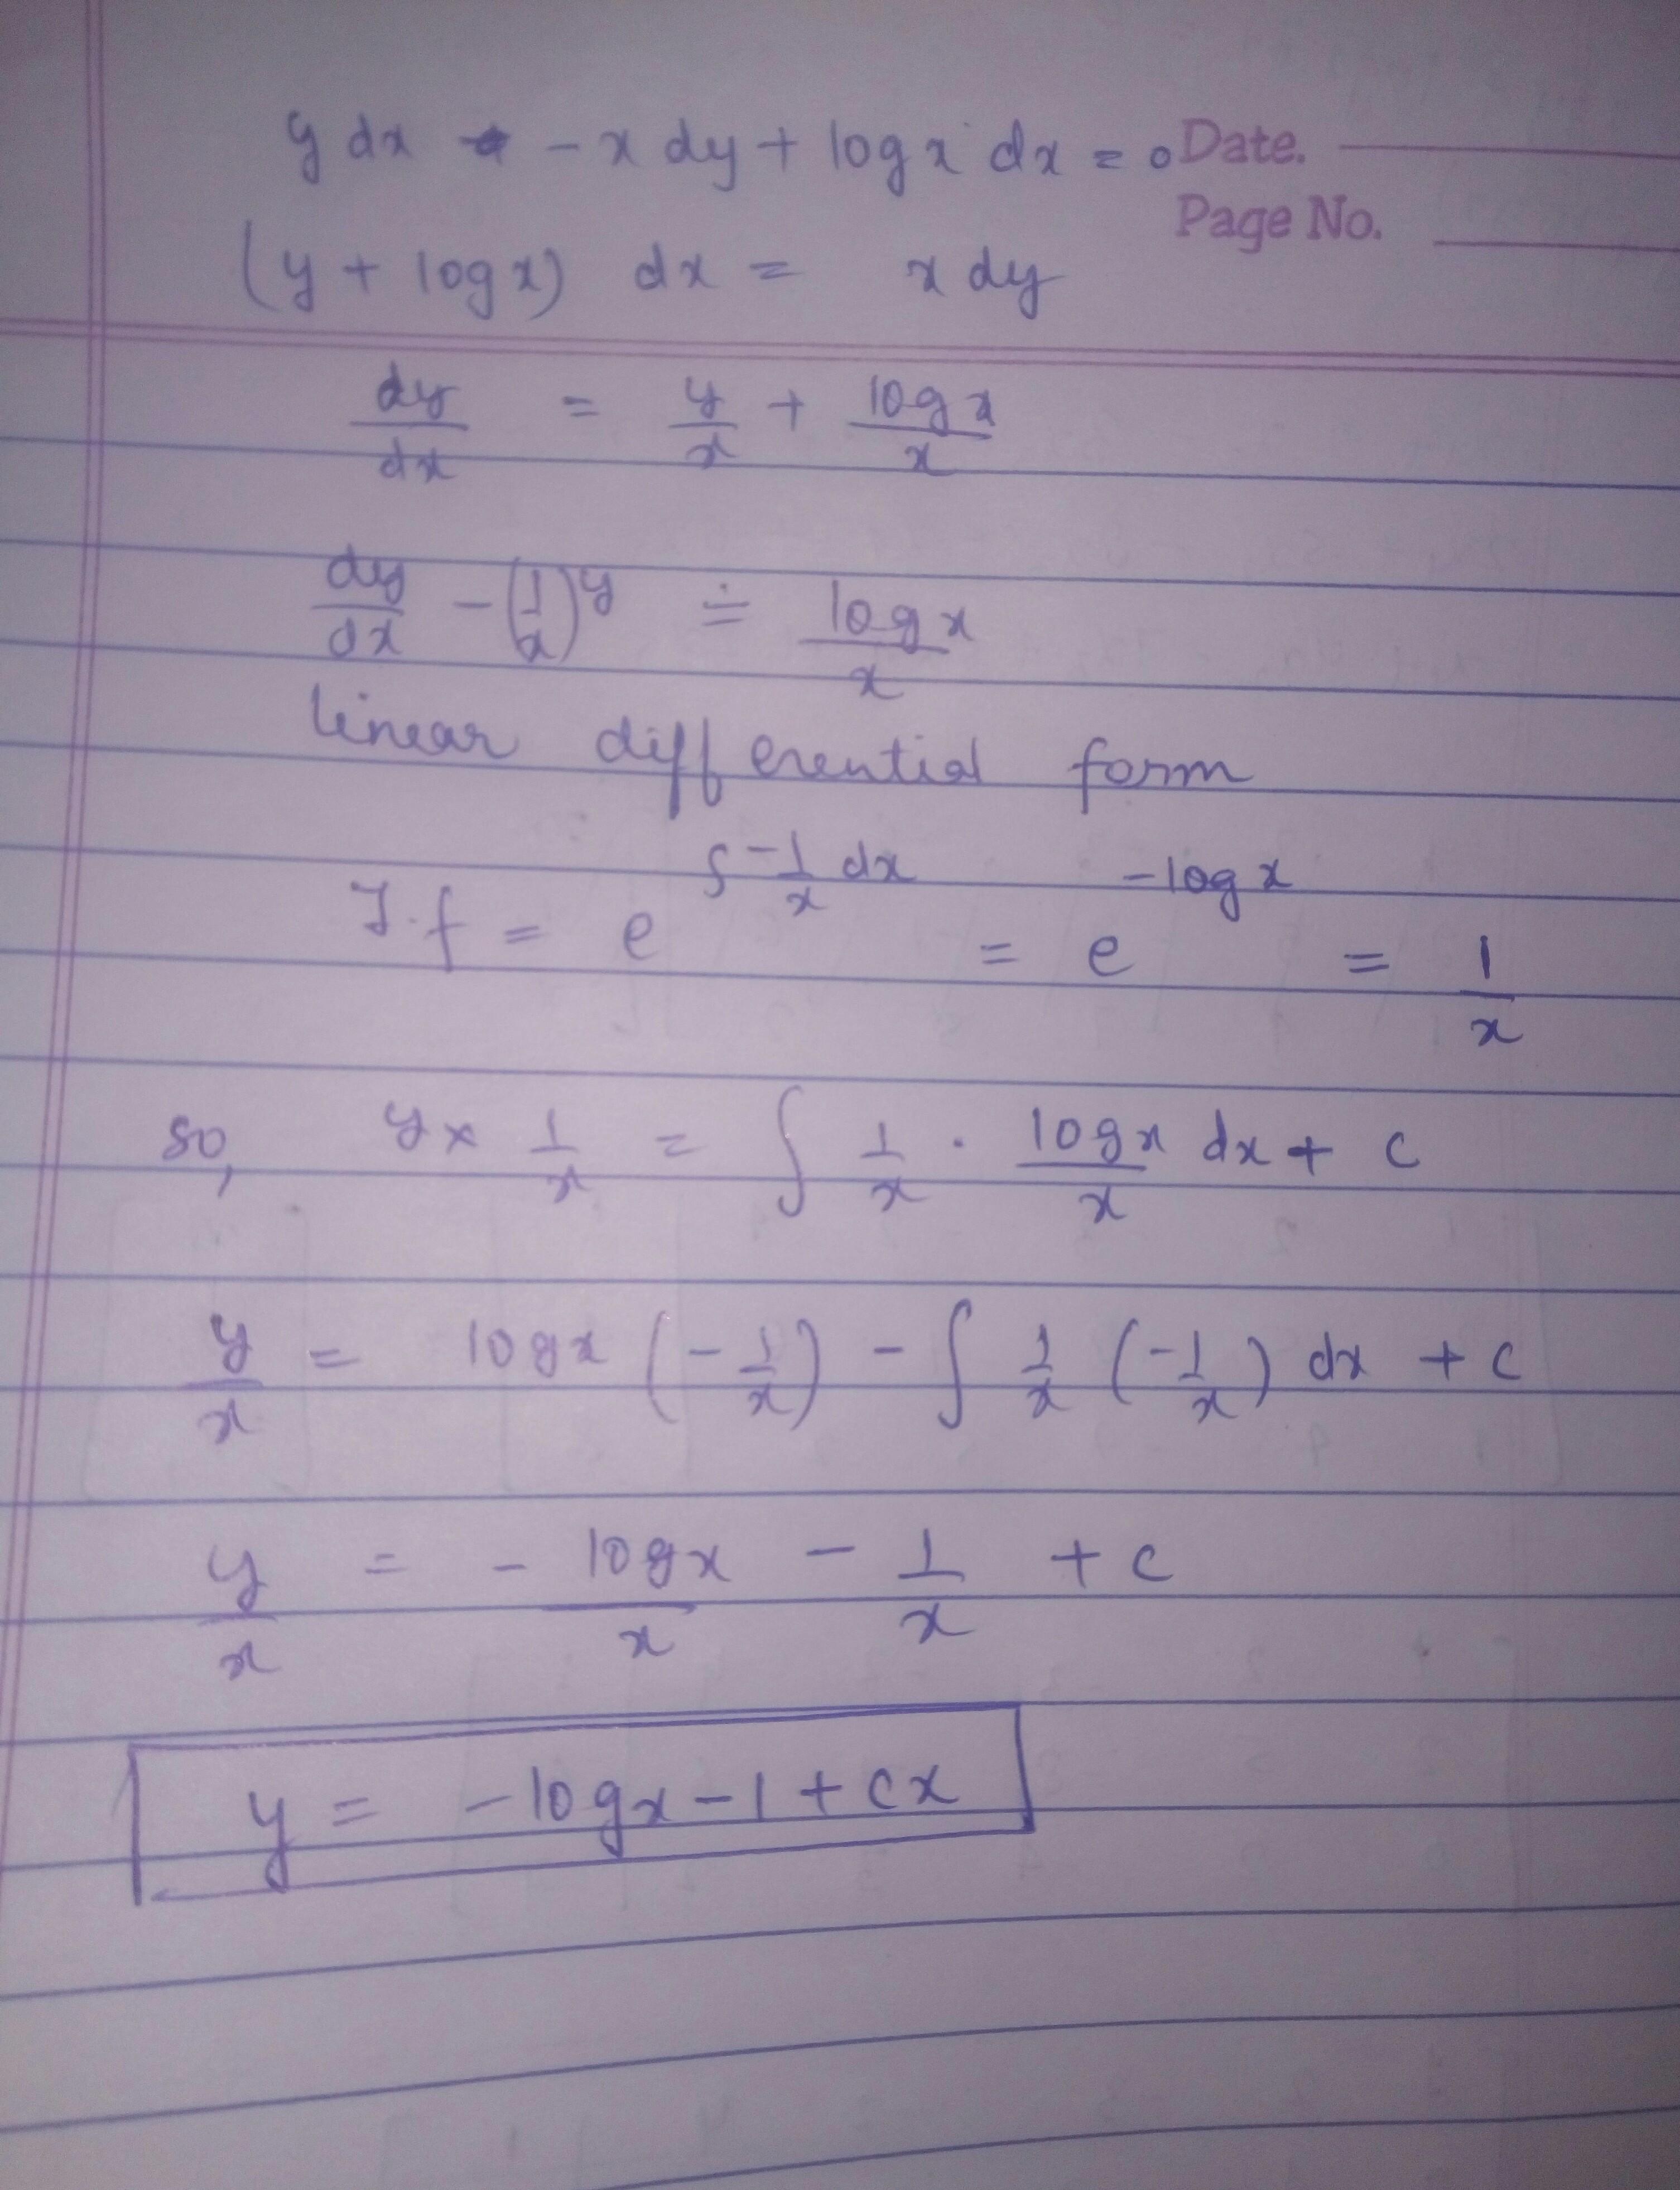 y dx - x dy + log x dx = 0 Date.
Page No.
(y + log x) dx = x dy
dy/dx = y/x + log x/x
dy/dx - (1/x)y = log x/x
linear differential form
I.f = e^∫-1/x dx = e^-log x = 1/x
so, y × 1/x = ∫ 1/x . log x/x dx + c
y/x = log x (-1/x) - ∫ 1/x (-1/x) dx + c
y/x = - log x/x - 1/x + c
y = -log x - 1 + cx